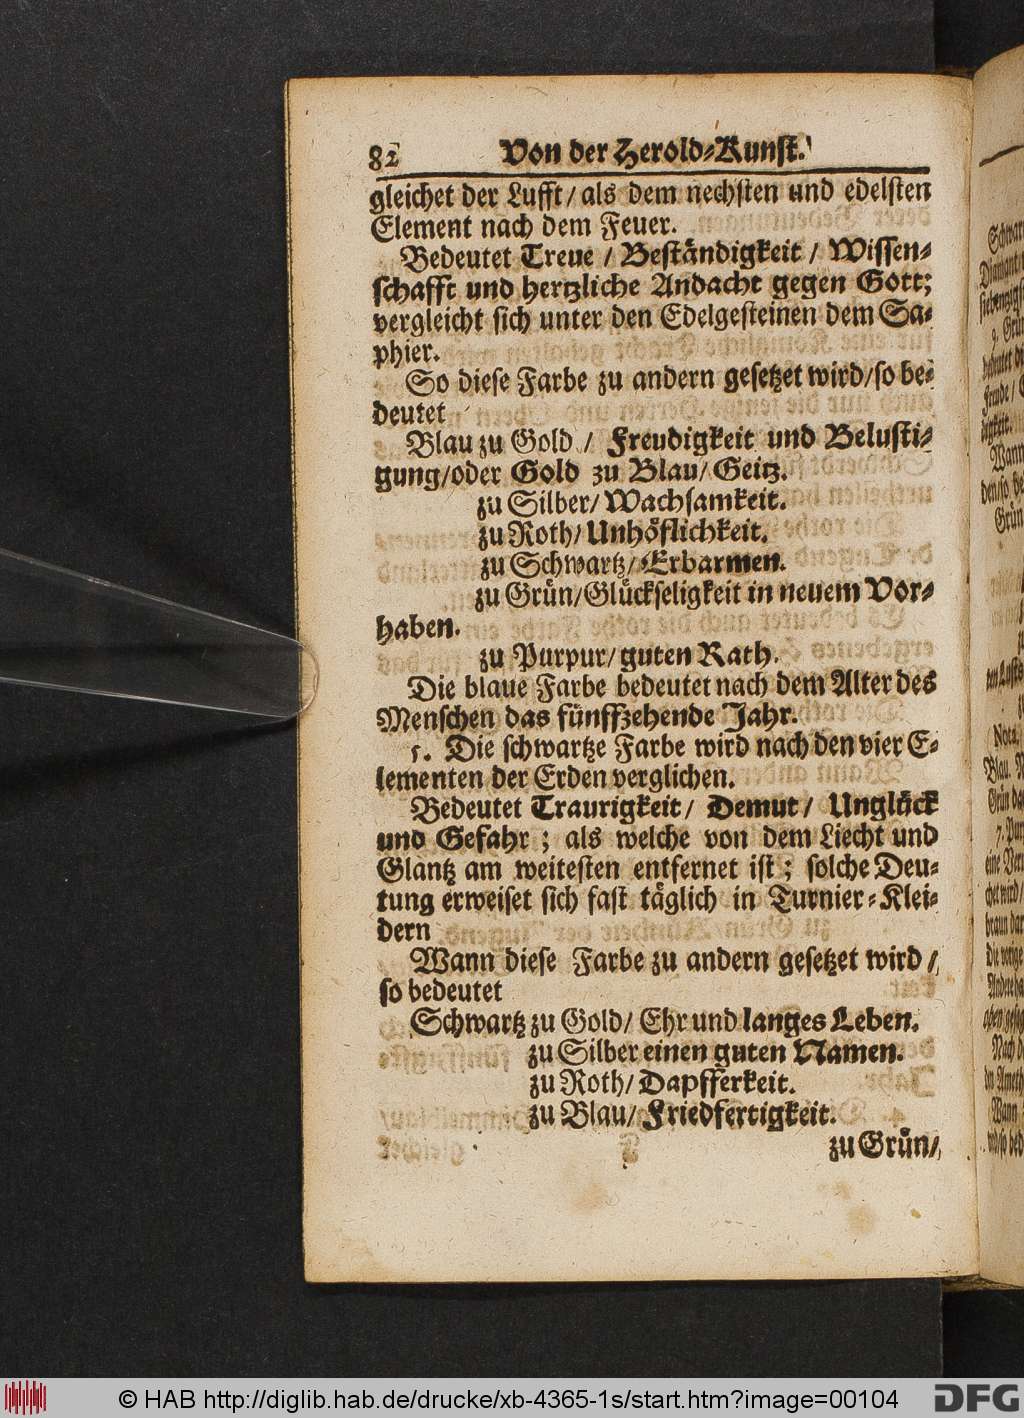 82 Von der Herold-Kunst.
gleichet der Lufft/ als dem nechsten und edelsten
Element nach dem Feuer.
Bedeutet Treue / Beständigkeit / Wissen-
schafft und hertzliche Andacht gegen Gott;
vergleicht sich unter den Edelgesteinen dem Sa-
phier.
So diese Farbe zu andern gesetzet wird/so be-
deutet
Blau zu Gold / Freudigkeit und Belusti-
gung/oder Gold zu Blau/ Geitz.
zu Silber/ Wachsamkeit.
zu Roth/ Unhöflichkeit.
zu Schwartz/ Erbarmen.
zu Grün/Glückseligkeit in neuem Vor-
haben.
zu Purpur/ guten Rath.
Die blaue Farbe bedeutet nach dem Alter des
Menschen das fünffzehende Jahr.
5. Die schwartze Farbe wird nach den vier E-
lementen der Erden verglichen.
Bedeutet Traurigkeit/ Demut/ Unglück
und Gefahr ; als welche von dem Liecht und
Glantz am weitesten entfernet ist ; solche Deu-
tung erweiset sich fast täglich in Turnier-Klei-
dern
Wann diese Farbe zu andern gesetzet wird /
so bedeutet
Schwartz zu Gold/ Ehr und langes Leben.
zu Silber einen guten Namen.
zu Roth/ Dapfferkeit.
zu Blau/ Friedfertigkeit.
zu Grün/
© HAB http://diglib.hab.de/drucke/xb-4365-1s/start.htm?image=00104
DFG